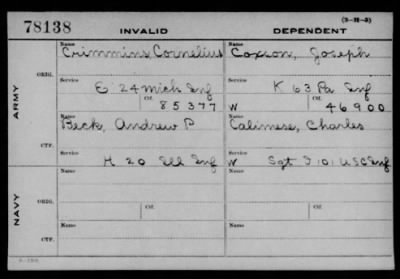 78138 INVALID DEPENDENT (3-H-3)
Name Name
Crimmins, Cornelius Coxson, Joseph
ORIG. Service Service
E 24 Mich Inf K 63 Pa Inf
Ctf. Ctf.
85377 W 46900
ARMY
Name Name
Beck, Andrew P Calimese, Charles
CTF. Service Service
H 20 Ill Inf W Sgt I 101 USC Inf
Name Name
ORIG. Ctf. Ctf.
NAVY
Name Name
CTF.